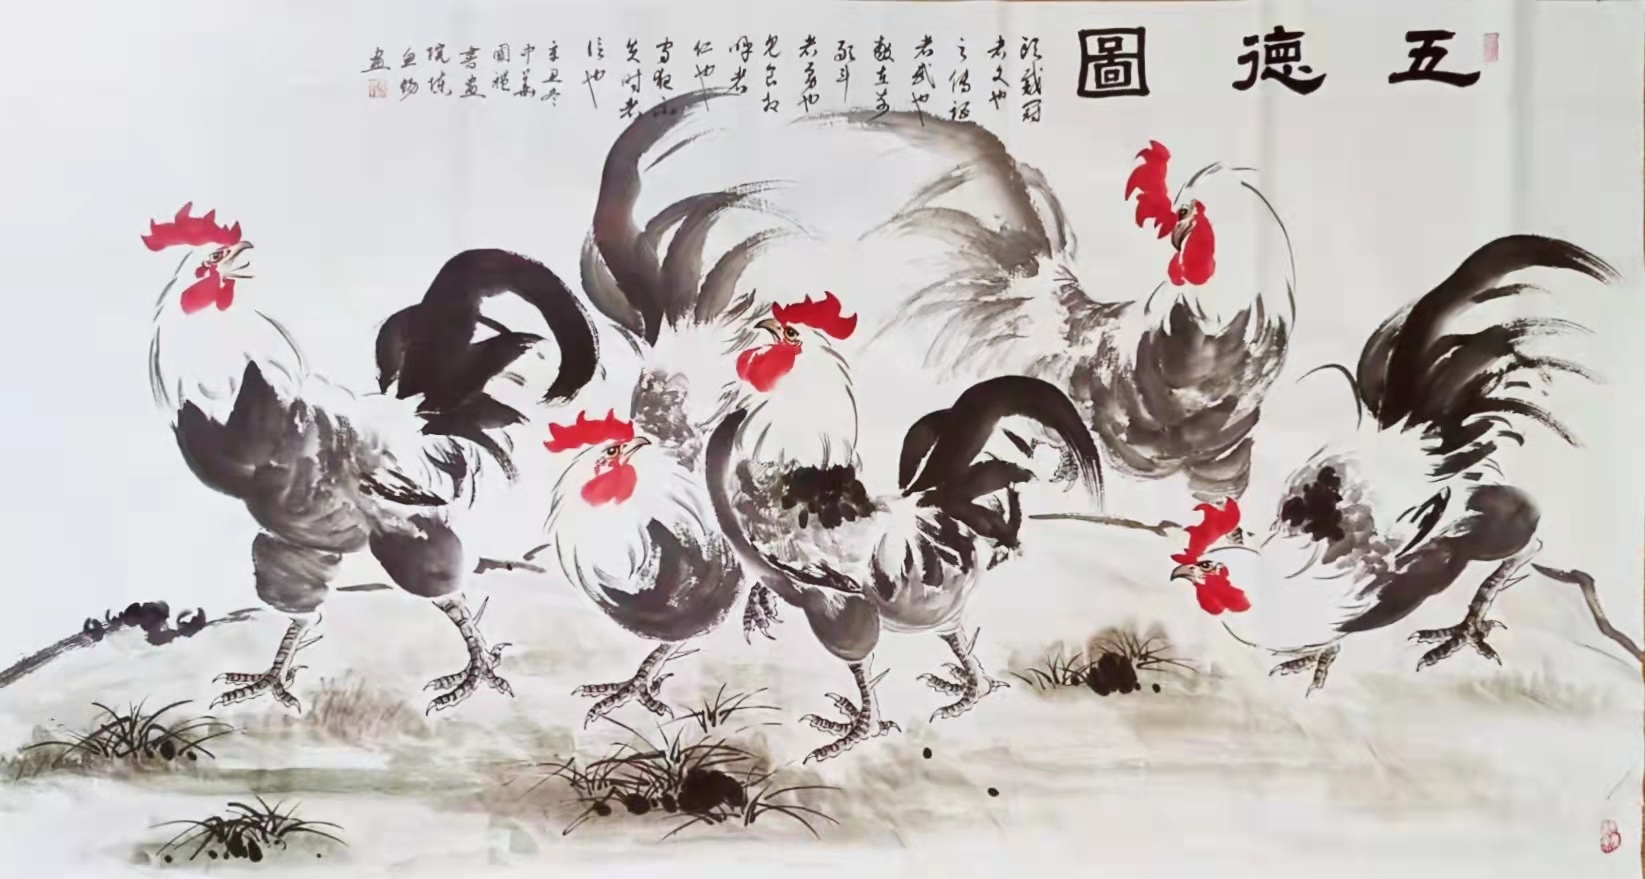 五德圖
头戴冠
者文也
足傅距
者武也
敵在前
敢斗
者勇也
見食相
呼者
仁也
守夜不
失时者
信也
辛丑冬
中華
國禮
書画
院陳
画